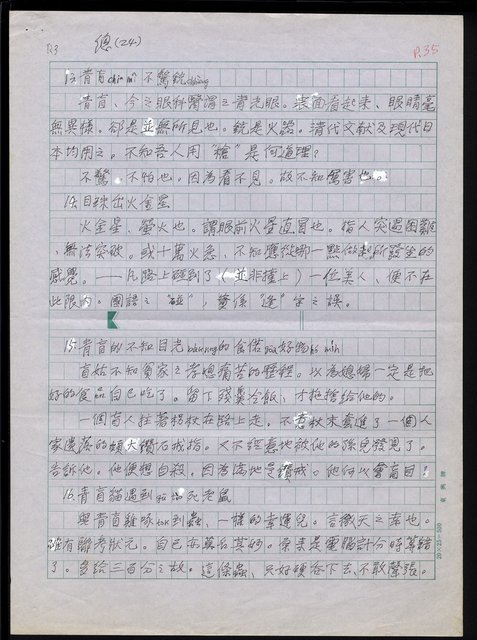 R3 總(24) P.35
13青盲chiⁿ mî不驚銃chhèng
青盲、今之眼科醫謂之青光眼。表面看起來、眼睛毫
無異樣。却是並無所見也。銃是火器。清代文献及現代日
本均用之。不知吾人用"槍"是何道理?
不驚、不怕也。因為看不見。故不知厲害也。
14目珠出火金星
火金星、螢火也。謂眼前火星直冒也。指人突遇困難
、無法突破。或十萬火急、不知應從哪一點做起所發生的
感覺。——凡路上碰到了(並非撞上)一位美人、便不在
此限內。國語之"碰"、實係"逢"字之誤。
15青盲的不知目光 的食偌 好物
盲姑不知貧家之 痛苦的歷程。以為媳婦一定是把
好的食品自己吃了。留下殘羹冷飯、才拖捨給他的。
一個盲人拄著枴杖在路上走。不 了一個人
家遺落的頗大鑽石戒指。又不經意地被他的孫兒發見了。
告訴他。他便想自殺。因為滿地是鑽戒。他何以會盲目!
16青盲貓遇到 死老鼠
與青盲雞啄tok到蟲、一樣的幸運兒。言徼天之幸也。
確有聯考狀元。自己莫名其妙。原來是電腦計分時算錯
了。多給三百分之故。這條蟲、只好硬吞下去、不敢聲張。
20×25=500